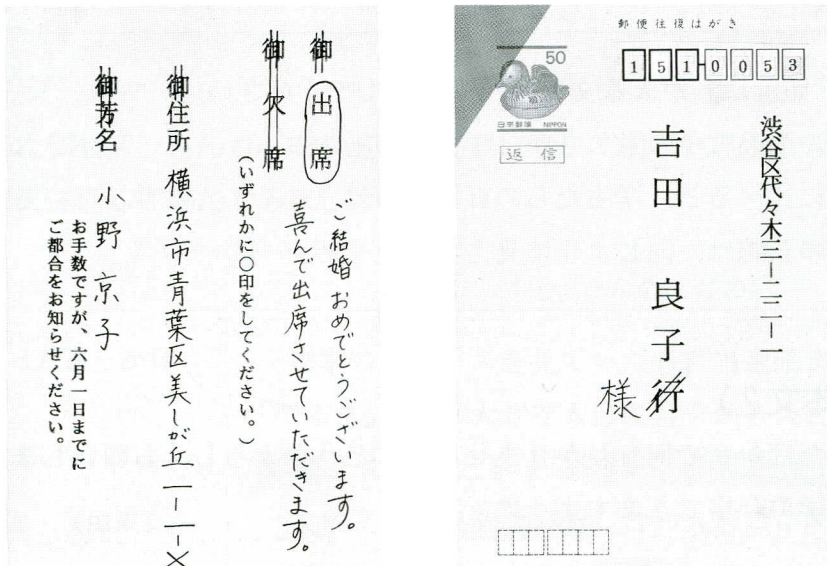 御出席
ご結婚おめでとうございます。
喜んで出席させていただきます。
御欠席
(いずれかに○印をしてください。)
御住所 横浜市青葉区美しが丘一ー一ー×
御芳名 小野京子
お手数ですが、六月一日までに
ご都合をお知らせください。
郵便往復はがき
50
日本郵便 NIPPON
返信
151-0053
渋谷区代々木三ー二二ー一
吉田 良子行
様